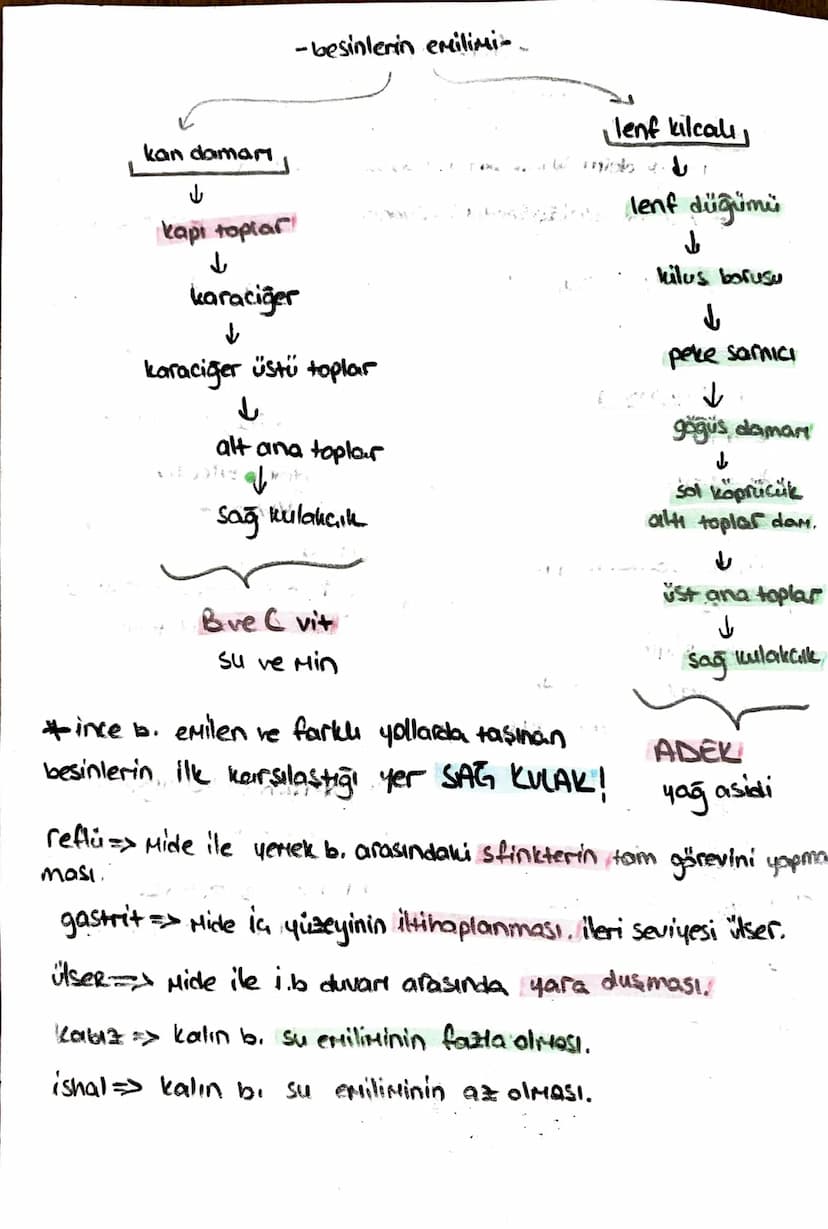 -besinlerin emilimi-
kan damarı
↓
kapı toplar
↓
karaciğer
↓
karaciğer üstü toplar
↓
alt ana toplar
↓
sağ kulakcık
B ve C vit
su ve min
lenf kılcalı
↓
lenf düğümü
↓
kilus borusu
↓
peke sarnıcı
↓
göğüs damarı
↓
sol köprücük
altı toplar dam.
↓
üst ana toplar
↓
sağ kulakcık
ADEK
yağ asidi
* ince b. emilen ve farklı yollarda taşınan
besinlerin ilk karşılaştığı yer SAĞ KULAK!
reflü => Mide ile yemek b. arasındaki sfinkterin tam görevini yapma
ması.
gastrit => Mide iç yüzeyinin iltihaplanması. ileri seviyesi ülser.
ülser => Mide ile i.b duvarı arasında yara oluşması.
kabız => kalın b. su emiliminin fazla olması.
ishal => kalın b. su emiliminin az olması.